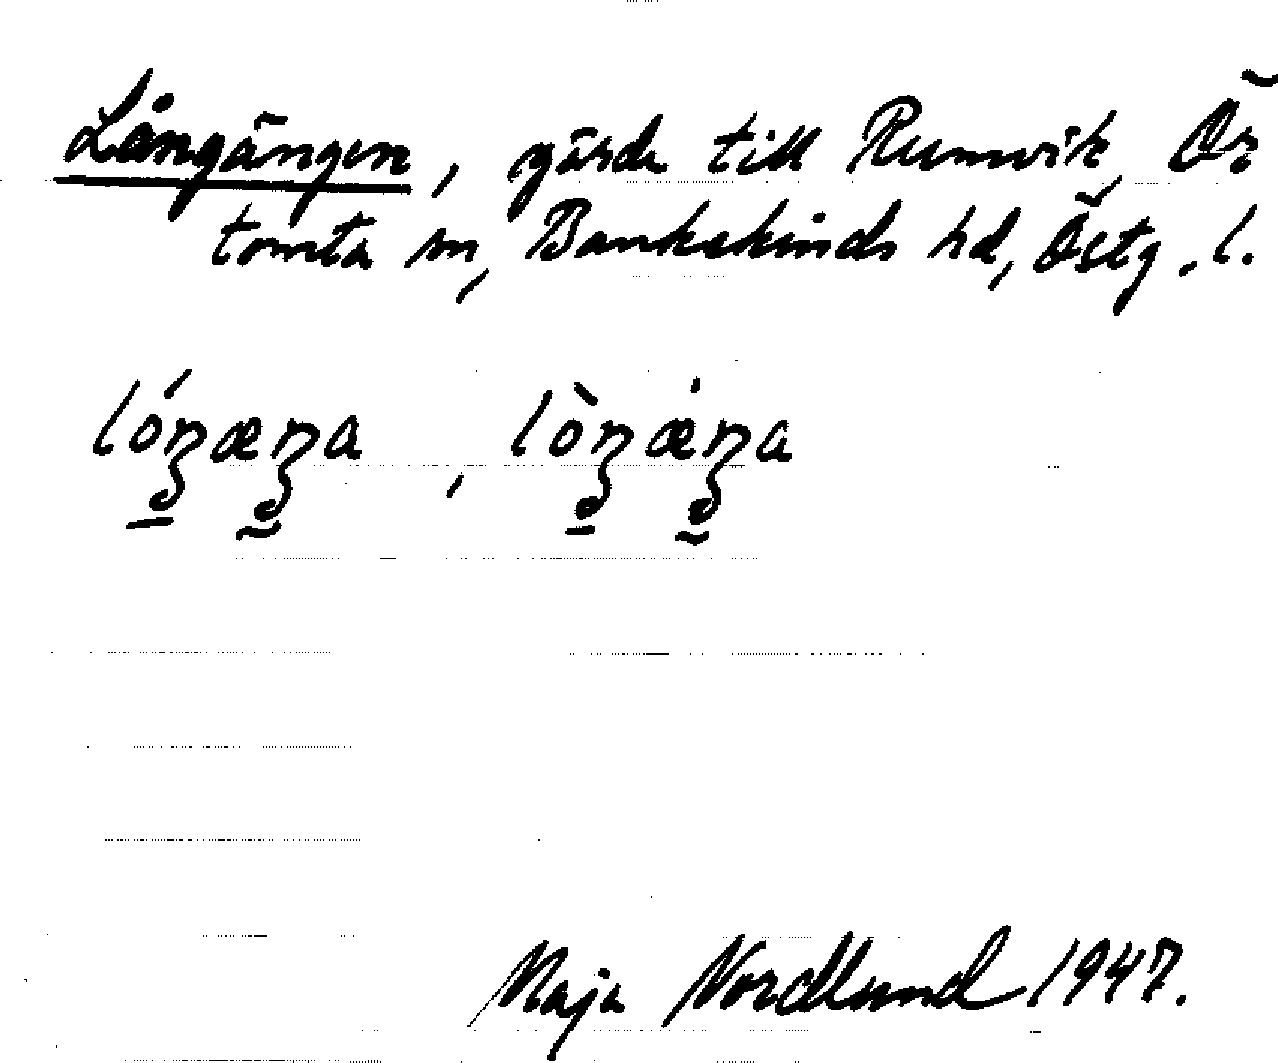 Långängen, gärde till Rumvik, Ör
tomta sn, Bankekinds hd, Östg. l.
lóŋæŋa, lòŋæ̇ŋa
Maja Nordlund 1947.